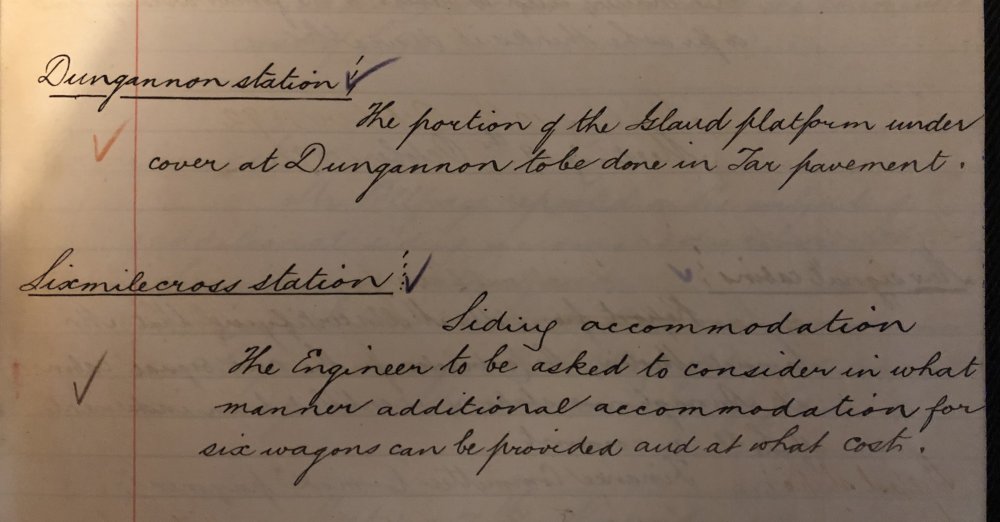 Dungannon station
The portion of the Island platform under
cover at Dungannon to be done in Tar pavement.
Sixmilecross station
Siding accommodation
The Engineer to be asked to consider in what
manner additional accommodation for
six wagons can be provided and at what cost.